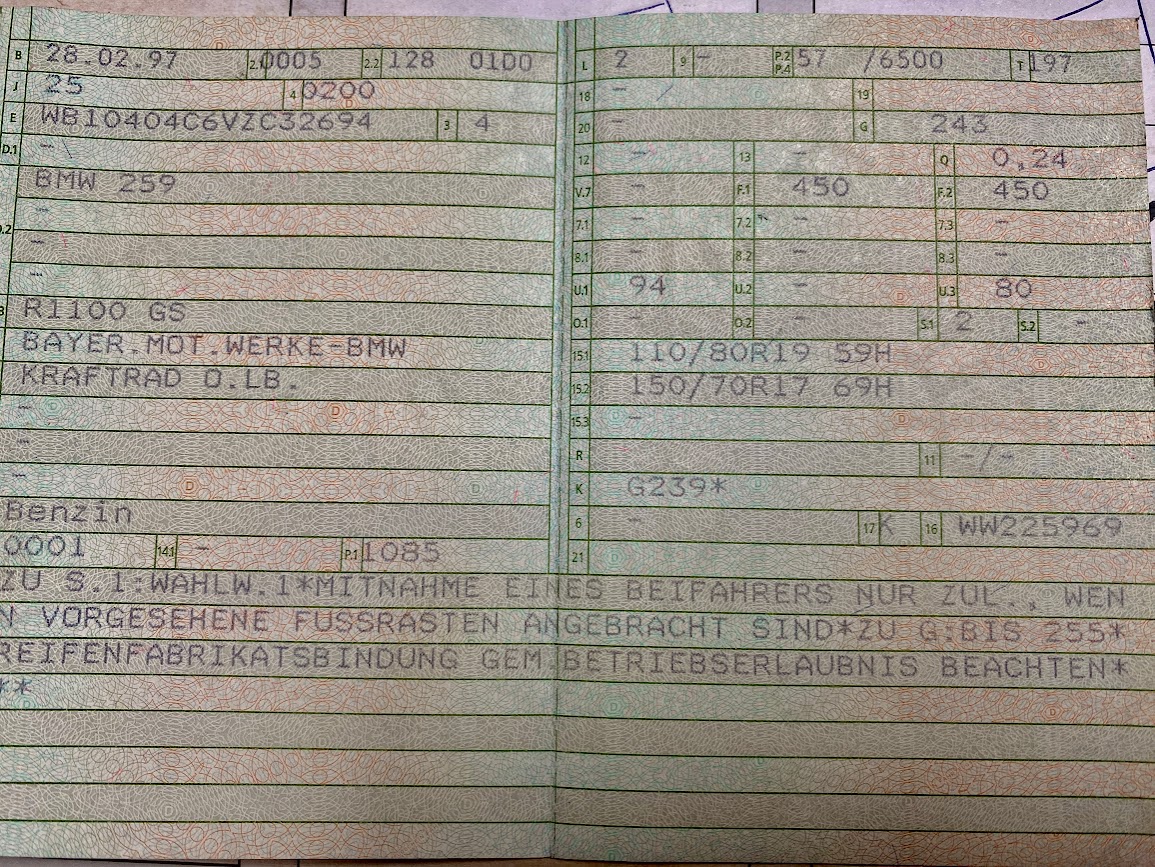 B 28.02.97 2.1 0005 2.2 128 01D0
J 25 4 0200
E WB10404C6VZC32694 3 4
D.1 -
BMW 259
-
D.2 -
-
3 R1100 GS
BAYER.MOT.WERKE-BMW
KRAFTRAD O.LB.
-
-
-
Benzin
0001 14.1 - P.1 1085
L 2 9 - P.2 P.4 57 /6500 T 197
18 - 19
20 - G 243
12 - 13 - Q 0,24
V.7 - F.1 450 F.2 450
7.1 - 7.2 - 7.3 -
8.1 - 8.2 - 8.3 -
U.1 94 U.2 - U.3 80
O.1 - O.2 - S.1 2 S.2 -
15.1 110/80R19 59H
15.2 150/70R17 69H
15.3 -
R 11 -/-
K G239*
6 - 17 K 16 WW225969
21
ZU S.1:WAHLW.1*MITNAHME EINES BEIFAHRERS NUR ZUL., WEN
N VORGESEHENE FUSSRASTEN ANGEBRACHT SIND*ZU G:BIS 255*
REIFENFABRIKATSBINDUNG GEM.BETRIEBSERLAUBNIS BEACHTEN*
**